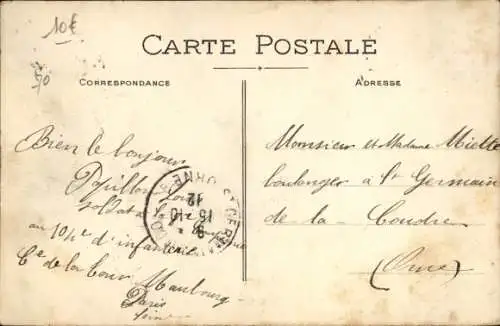 10€
CARTE POSTALE
CORRESPONDANCE
ADRESSE
Bien le bonjour
Papillon Louis
soldat à la
au 104e d'infanterie
Cie de la Tour Maubourg
Paris
Monsieur et Madame Miette
boulanger à St Germain
de-la-Coudre
(Orne)
12
15 10